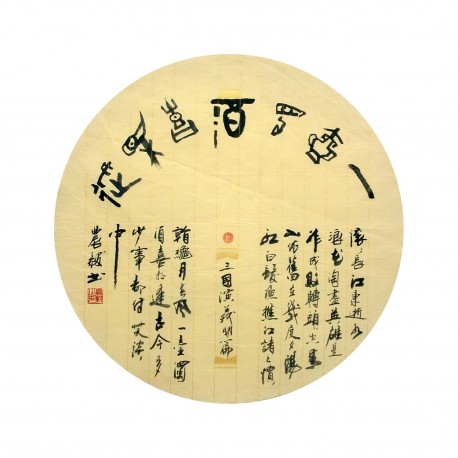 一壺濁酒喜相逢
滚滚長江東逝水
浪花淘盡英雄是
非成敗轉頭空青
山依舊在幾度夕陽
紅白髮漁樵江渚上慣
三國演義開篇
看秋月春風一壺濁
酒喜相逢古今多
少事都付笑談
中
農書